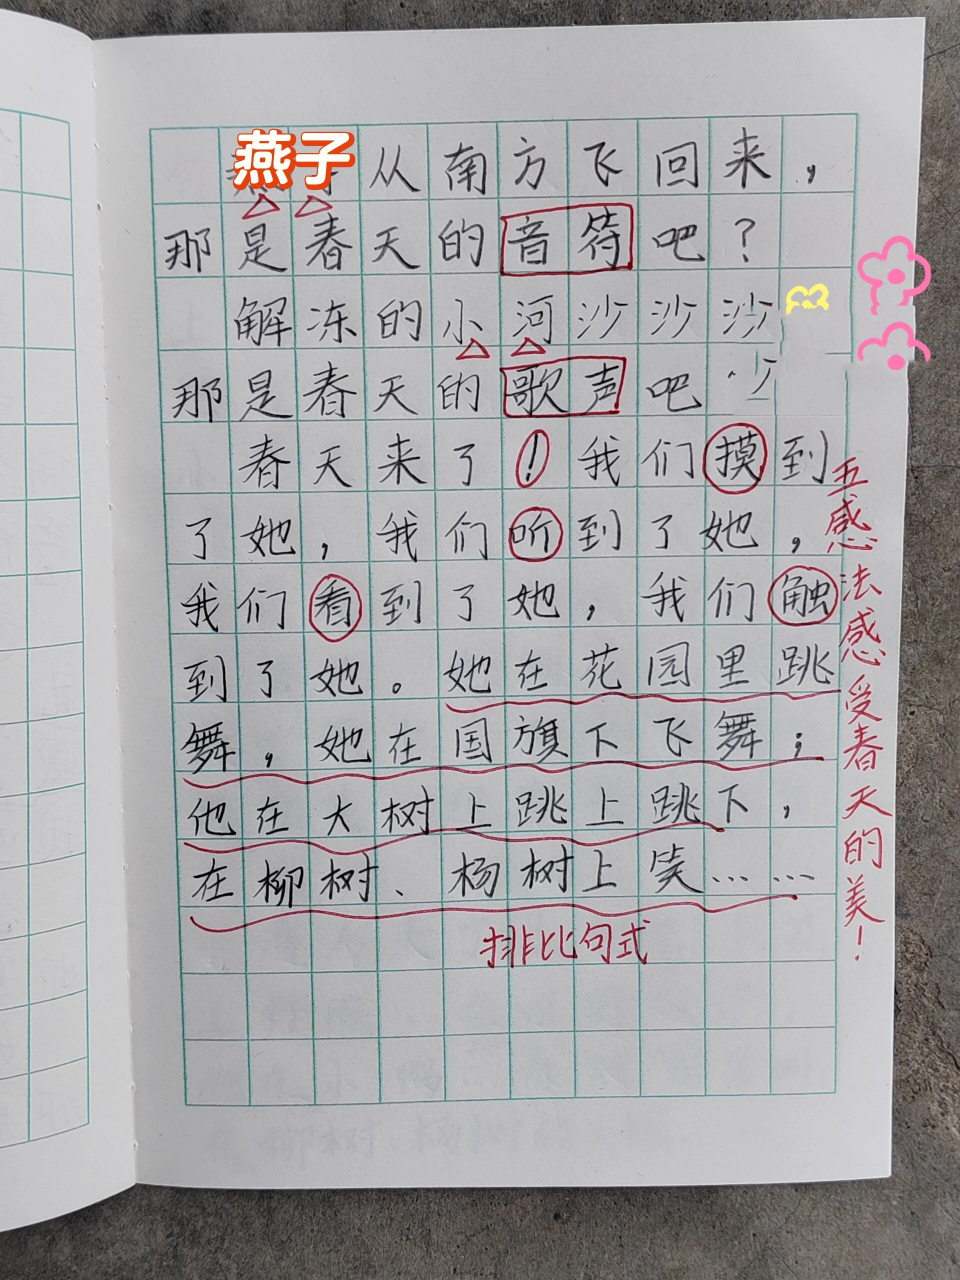 燕子从南方飞回来，
那是春天的音符吧？
解冻的小河沙沙沙
那是春天的歌声吧
春天来了！我们摸到
了她，我们听到了她，
我们看到了她，我们触
到了她。她在花园里跳
舞，她在国旗下飞舞；
他在大树上跳上跳下，
在柳树、杨树上笑……
排比句式
五感法感受春天的美！